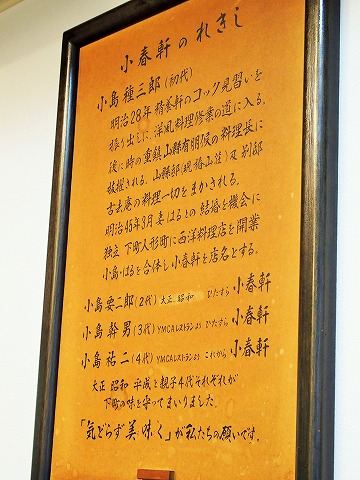 小春軒のれきし
小島種三郎(初代)
明治28年 精養軒のコック見習いを
振り出しに、洋風料理修業の道に入る。
後に時の重鎮山縣有朋候の料理長に
抜擢される。山縣邸(現椿山荘)及 別邸
古希庵の料理一切をまかされる。
明治45年3月 妻はるとの 結婚を機会に
独立 下町人形町に西洋料理店を開業
小島・はるを合体し 小春軒を店名とする。
小島要二郎(2代) 大正 昭和 ひたすら 小春軒
小島幹男(3代) YMCAレストランより ひたすら 小春軒
小島祐二(4代) YMCAレストランより これから 小春軒
大正 昭和 平成と親子4代それぞれが
下町の味を守ってまいりました。
「気どらず美味く」が私たちの願いです。